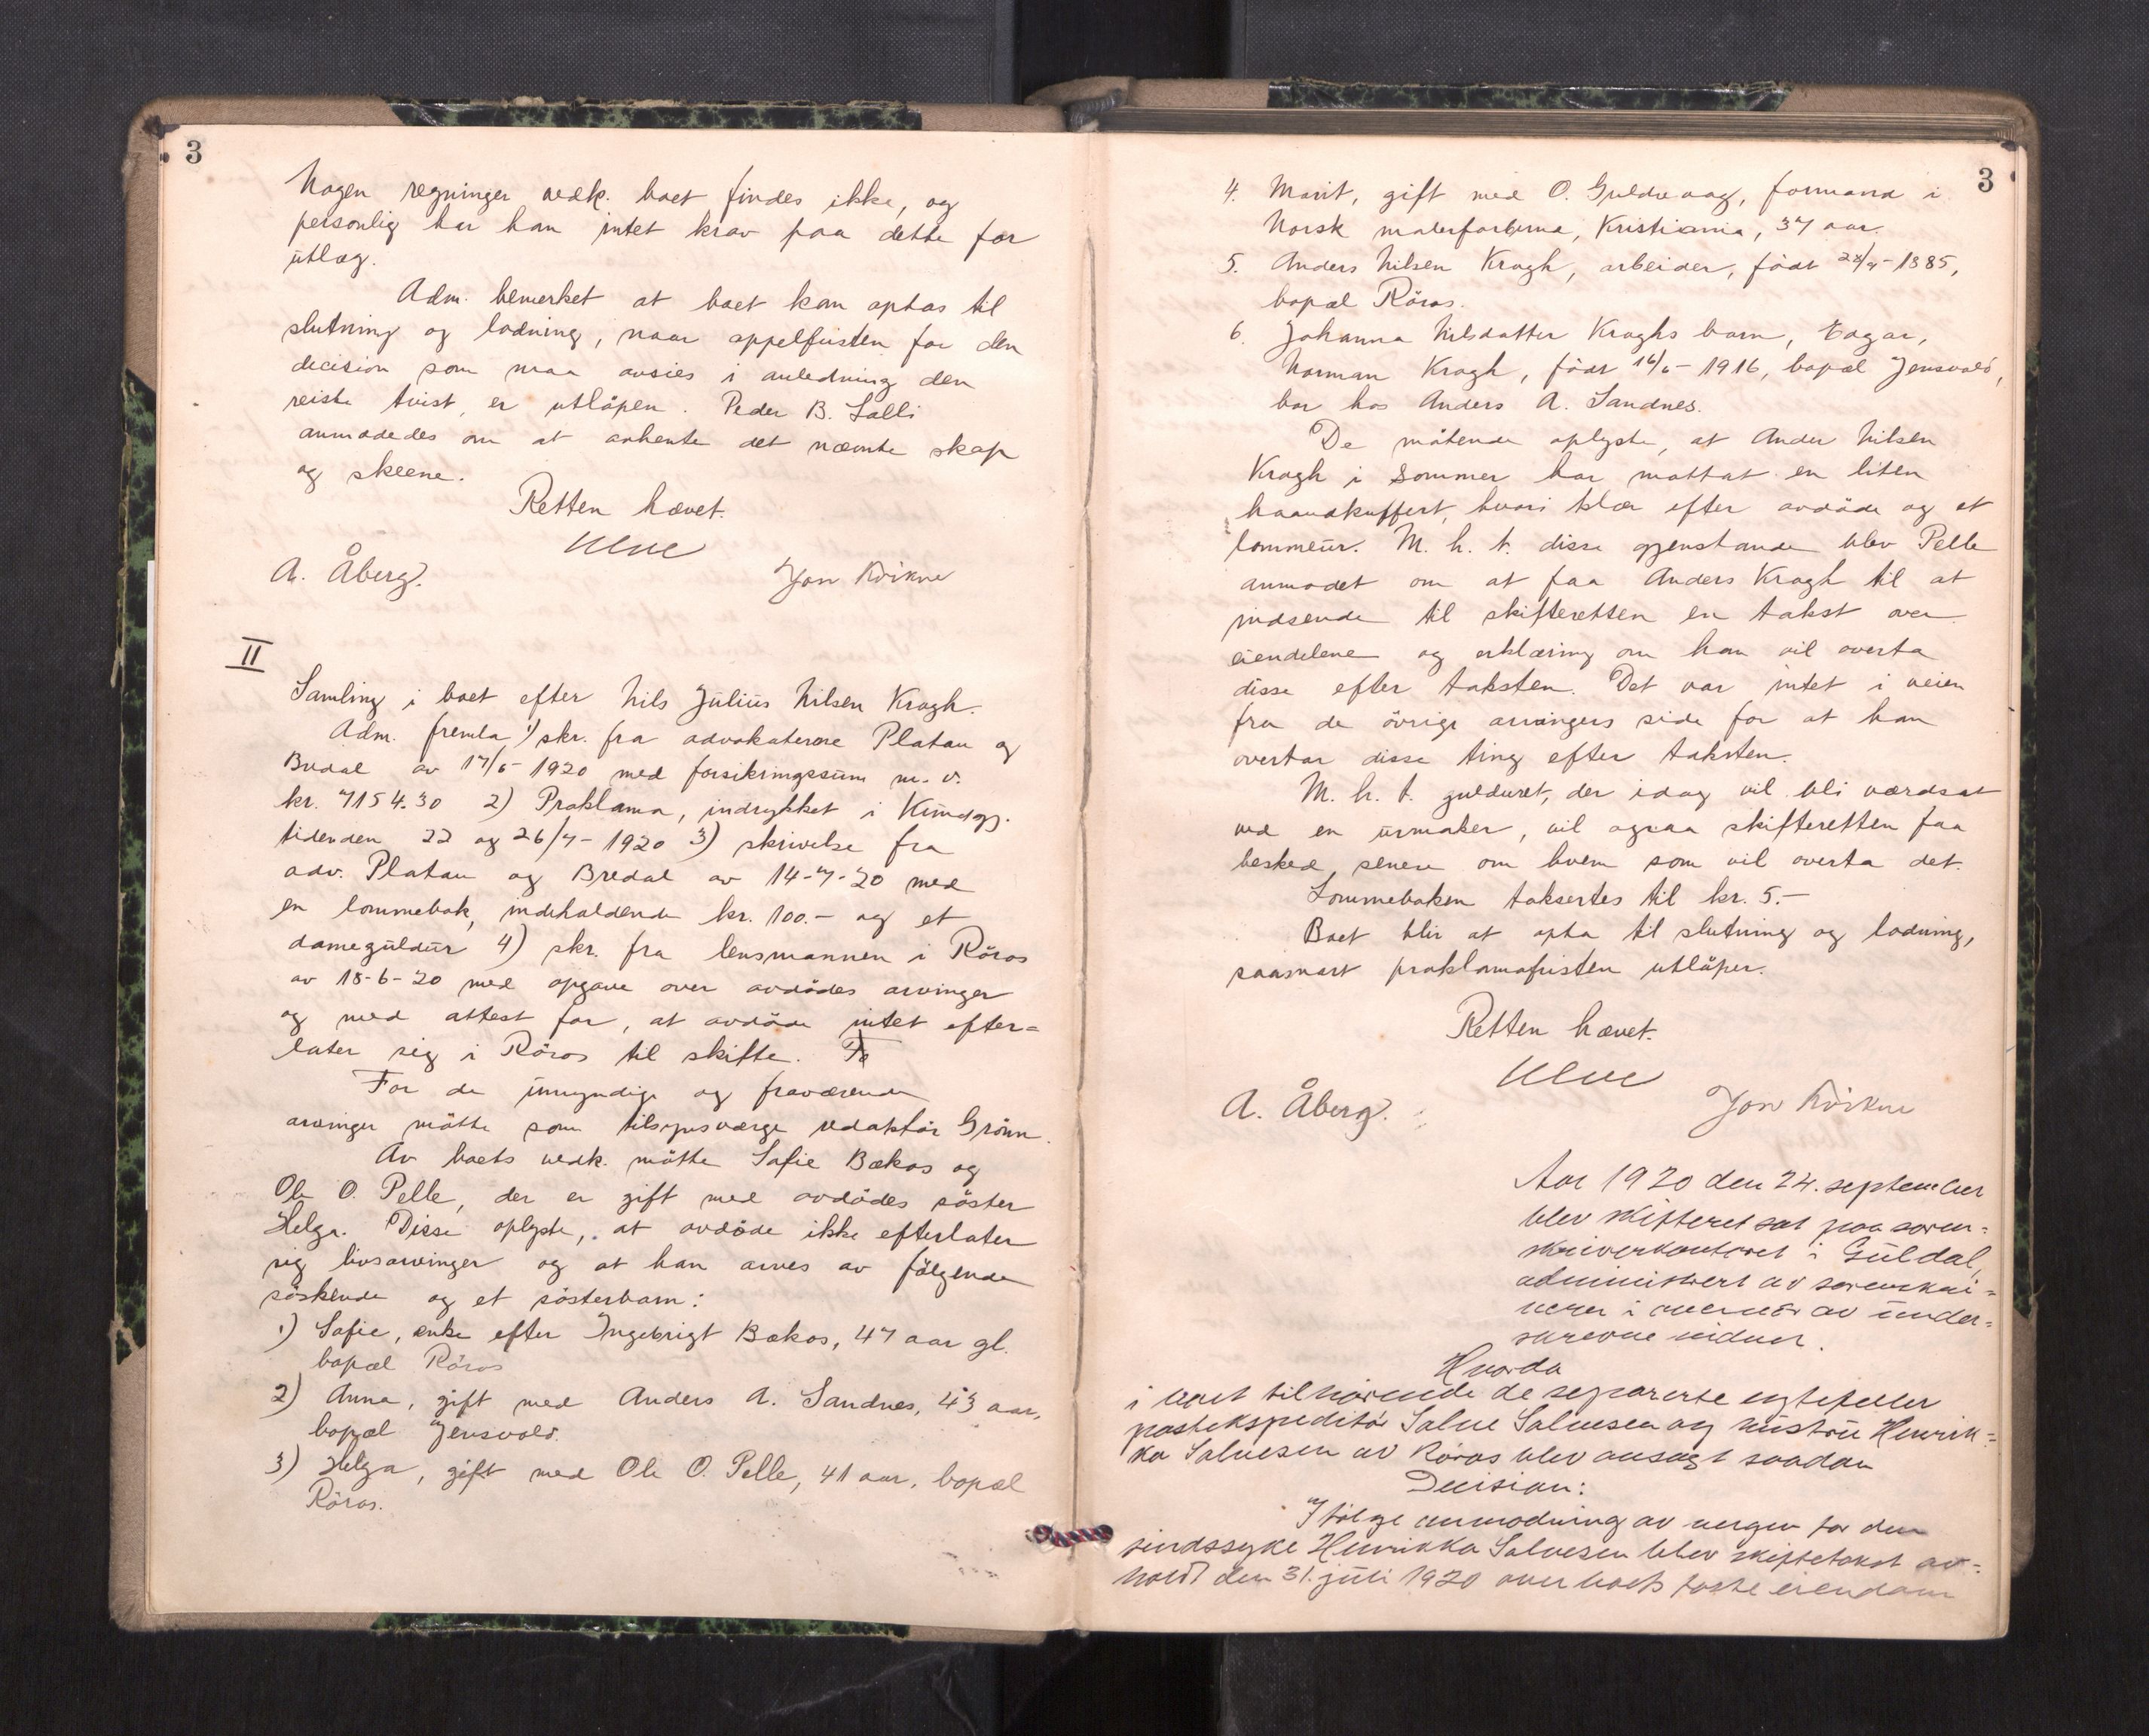 3
Nogen regninger vedk. boet findes ikke, og
personlig har han intet krav paa dette for
utlæg.
Adm. bemerket at boet kan optas til
slutning og lodning, naar appelfristen for den
decision som maa avsies i anledning den
reiste tvist, er utlöpen. Peder B. Galli
anmodedes om at avhente det nævnte skap
og skeene.
Retten hævet.
A. Åberg. Jon Kvikne
II
Samling i boet efter Nils Julius Nilsen Kragh.
Adm. fremla 1) skr. fra advokaterne Platou og
Bredal av 17/6-1920 med forsikringssum m. v.
kr. 7154.30 2) Proklama, indrykket i Kundgj.
tidenden 22 og 26/7-1920 3) skrivelse fra
adv. Platou og Bredal av 14-7-20 med
en lommebok, indeholdende kr. 100.- og et
dameguldur 4) skr. fra lensmannen i Röros
av 18-6-20 med opgave over avdödes arvinger
og med attest for, at avdöde intet efter=
later sig i Röros til skifte.
For de umyndige og fraværende
arvinger mötte som tilsynsverge redaktör Grönn.
Av boets vedk. mötte Sofie Bækos og
Ole O. Pelle, der er gift med avdödes söster
Helga. Disse oplyste, at avdöde ikke efterlater
sig livsarvinger og at han arves av fölgende
söskende og et sösterbarn:
1) Sofie, enke efter Ingebrigt Bækos, 47 aar gl.
bopæl Röros
2) Anna, gift med Anders A. Sandnes, 43 aar,
bopæl Jensvold.
3) Helga, gift med Ole O. Pelle, 41 aar, bopæl
Röros.
3
4. Marit, gift med O. Guldvaag, formand i
Norsk malerfarberna, Kristiania, 37 aar.
5. Anders Nilsen Kragh, arbeider, födt 28/4-1885,
bopæl Röros.
6. Johanna Nilsdatter Kraghs barn, Edgar,
Norman Kragh, födt 16/6-1916, bopæl Jensvold,
bor hos Anders A. Sandnes.
De mötende oplyste, at Ander Nilsen
Kragh i sommer har mottat en liten
haandkuffert, hvori klær efter avdöde og et
lommeur. M. h. t. disse gjenstande blev Pelle
anmodet om at faa Anders Kragh til at
indsende til skifteretten en takst over
eiendelene og erklæring om han vil overta
disse efter taksten. Det var intet i veien
fra de övrige arvingers side for at han
overtar disse ting efter taksten.
M. h. t. gulduret, der idag vil bli værdsat
ved en urmaker, vil ogsaa skifteretten faa
besked senere om hvem som vil overta det.
Lommeboken taksertes til kr. 5.-
Boet blir at opta til slutning og lodning,
saasnart proklamafristen utlöper.
Retten hævet.
A. Åberg. Jon Kvikne
Aar 1920 den 24. september
blev skifteret sat paa soren=
skriverkontoret i Guldal,
administrert av sorenskri=
verer i nærvær av under=
skrevne vidner.
Hvorda
i boet tilhörende de separerte egtefeller
postekspeditör Salve Salvesen og hustru Henrik=
ka Salvesen av Röros blev avsagt saadan
Decision:
Ifölge anmodning av vergen for den
sindssyke Henrikka Salvesen blev skiftetakst av=
holdt den 31. juli 1920 over boets faste eiendom